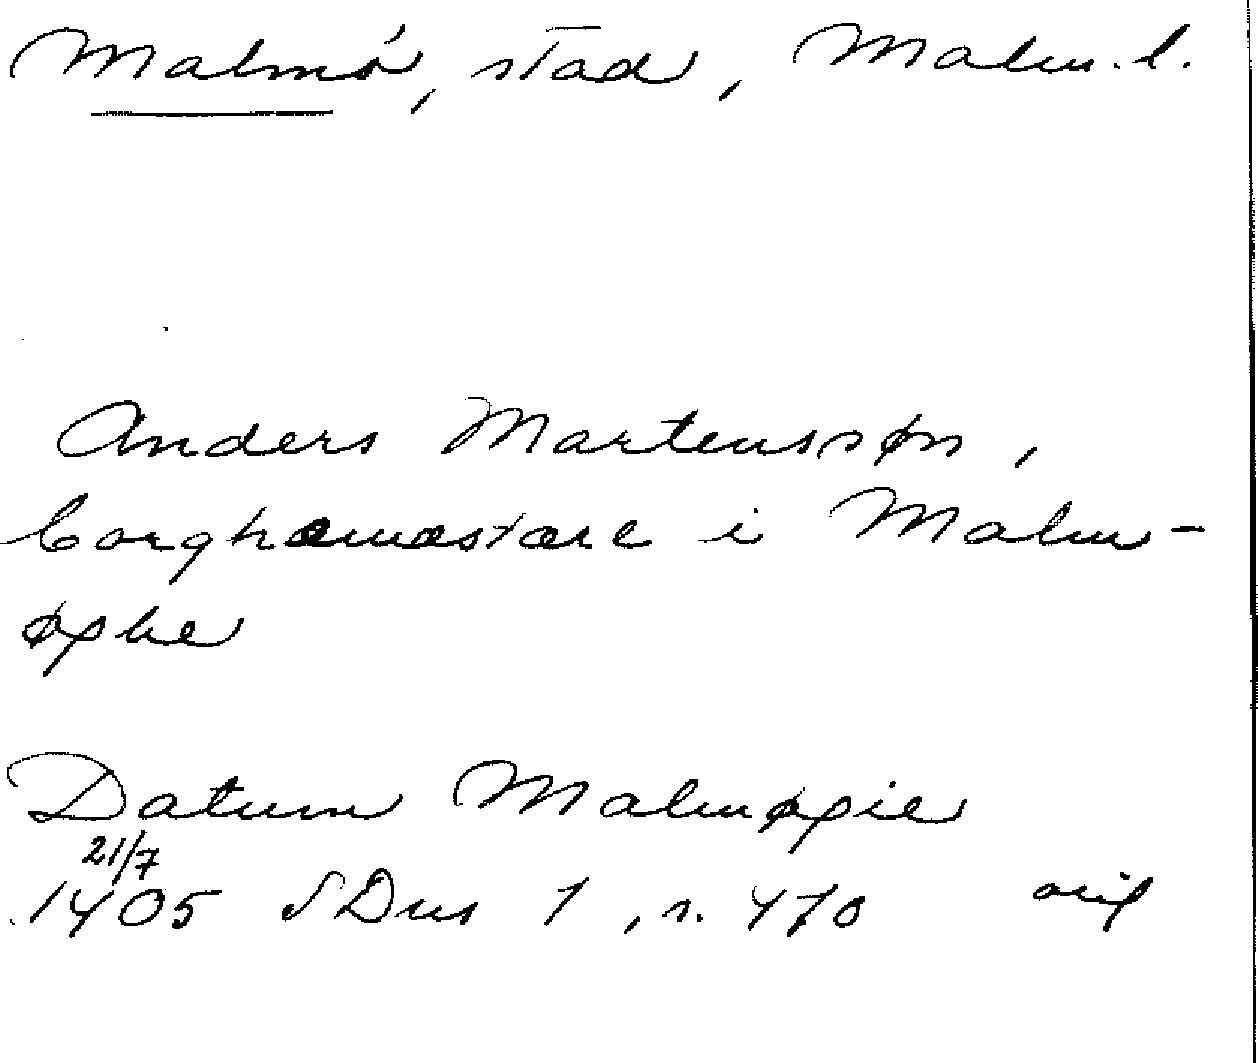 Malmö, stad, Malm. l.
Anders Martenssøn,
borghamæstare i Malm-
øghe
Datum Malmøgie
21/7
1405 SDns 1, s. 470 orig